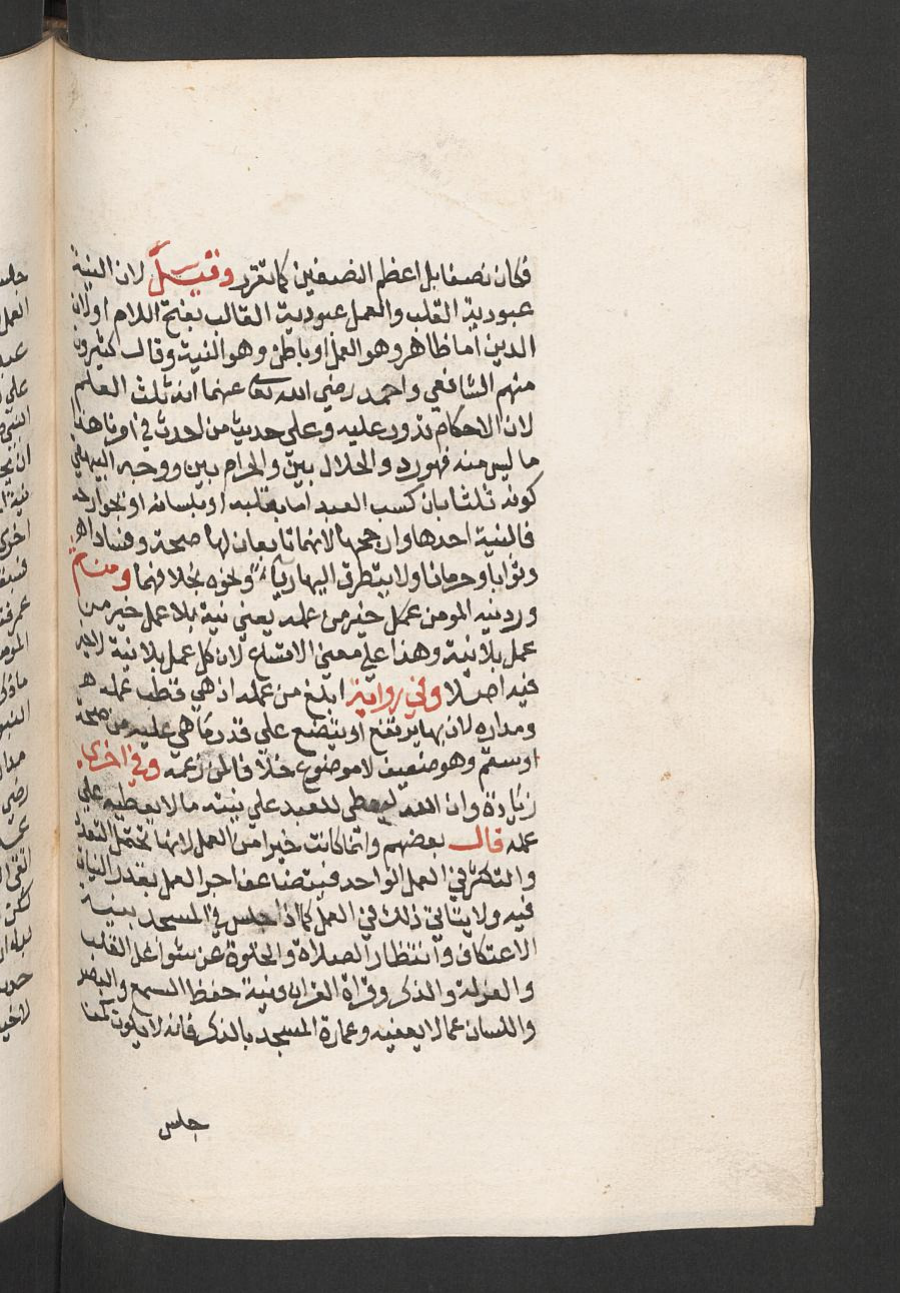 فكان نصفا بل اعظم النصفين كما تقرر وقيل لان النية
عبودية القلب والعمل عبودية القالب بفتح اللام او لان
الدين اما ظاهر وهو العمل او باطن وهو النية وقال كثيرون
منهم الشافعي واحمد رضي الله تعالى عنهما انه ثلث العلم
لان الاحكام تدور عليه وعلى حديث من احدث في امرنا هذا
ما ليس منه فهو رد والحلال بين والحرام بين ووجه البيهقي
كونه ثلثا بان كسب العبد اما بقلبه او بلسانه او بجوارحه
فالنية احدها وارجحها لانهما تابعان لها صحة وفسادا
وثوابا وحرمانا ولا يتطرق اليها رياء ونحوه بخلافهما ومن ثم
ورد نية المومن خير من عمله يعني نية بلا عمل خير من
عمل بلا نية وهذا على معنى الاتساع لان كل عمل بلا نية لا خير
فيه اصلا وفي رواية ابلغ من عمله اذ هي قطب عمله
ومداره لان بها يرتفع او يتضع على قدر ما هي عليه من صحة
او سقم وهو ضعيف لا موضوع خلافا لمن زعمه وفي اخرى
زيادة وان الله ليعطي للعبد على نيته ما لا يعطيه على
عمله قال بعضهم وانما كانت خيرا من العمل لانها تحتمل التعدد
والتكثر في العمل الواحد فيتضاعف اجر العمل بقدر النيات
فيه ولا يتاتى ذلك في العمل كما اذا جلس في المسجد بنية
الاعتكاف وانتظار الصلاة والخلوة عن شواغل القلب
والعزلة والذكر وقراة القران ونية حفظ السمع والبصر
واللسان عما لا يعنيه وعمارة المسجد بالذكر فانه لا يكون
جلس